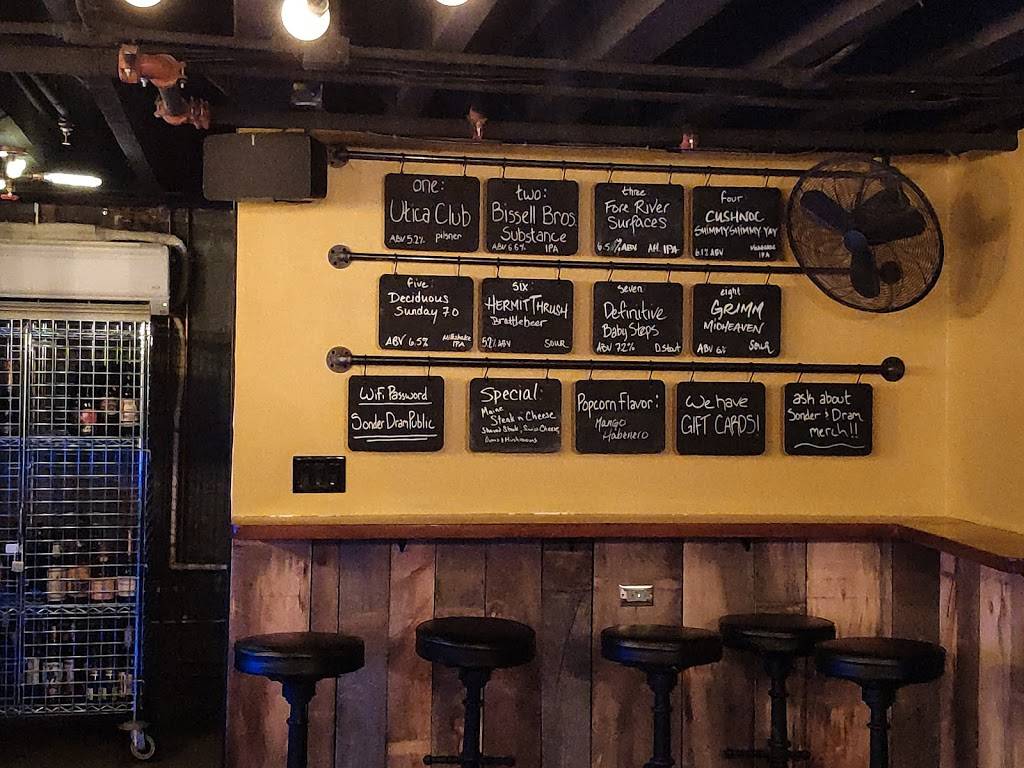 one:
Utica Club
ABV 5.2% pilsner
two:
Bissell Bros.
Substance
ABV 6.6% IPA
three
Fore River
Surfaces
ABV AM. IPA
four
CUSHNOC
SHIMMY SHIMMY YAY
6.1% ABV IPA
five:
Deciduous
Sunday 7.0
ABV 6.5% Milkshake IPA
six:
HERMIT THRUSH
Brattlebeer
5.2% ABV SOUR
seven
Definitive
Baby Steps
ABV 7.2% D. Stout
eight
GRIMM
MIDHEAVEN
ABV 6% SOUR
WiFi Password
SonderDramPublic
Special:
Maine
Steak n' Cheese
Shaved Steak, Swiss Cheese,
Mushrooms
Popcorn Flavor:
Mango
Habenero
We have
GIFT CARDS!
ask about
Sonder & Dram
merch!!